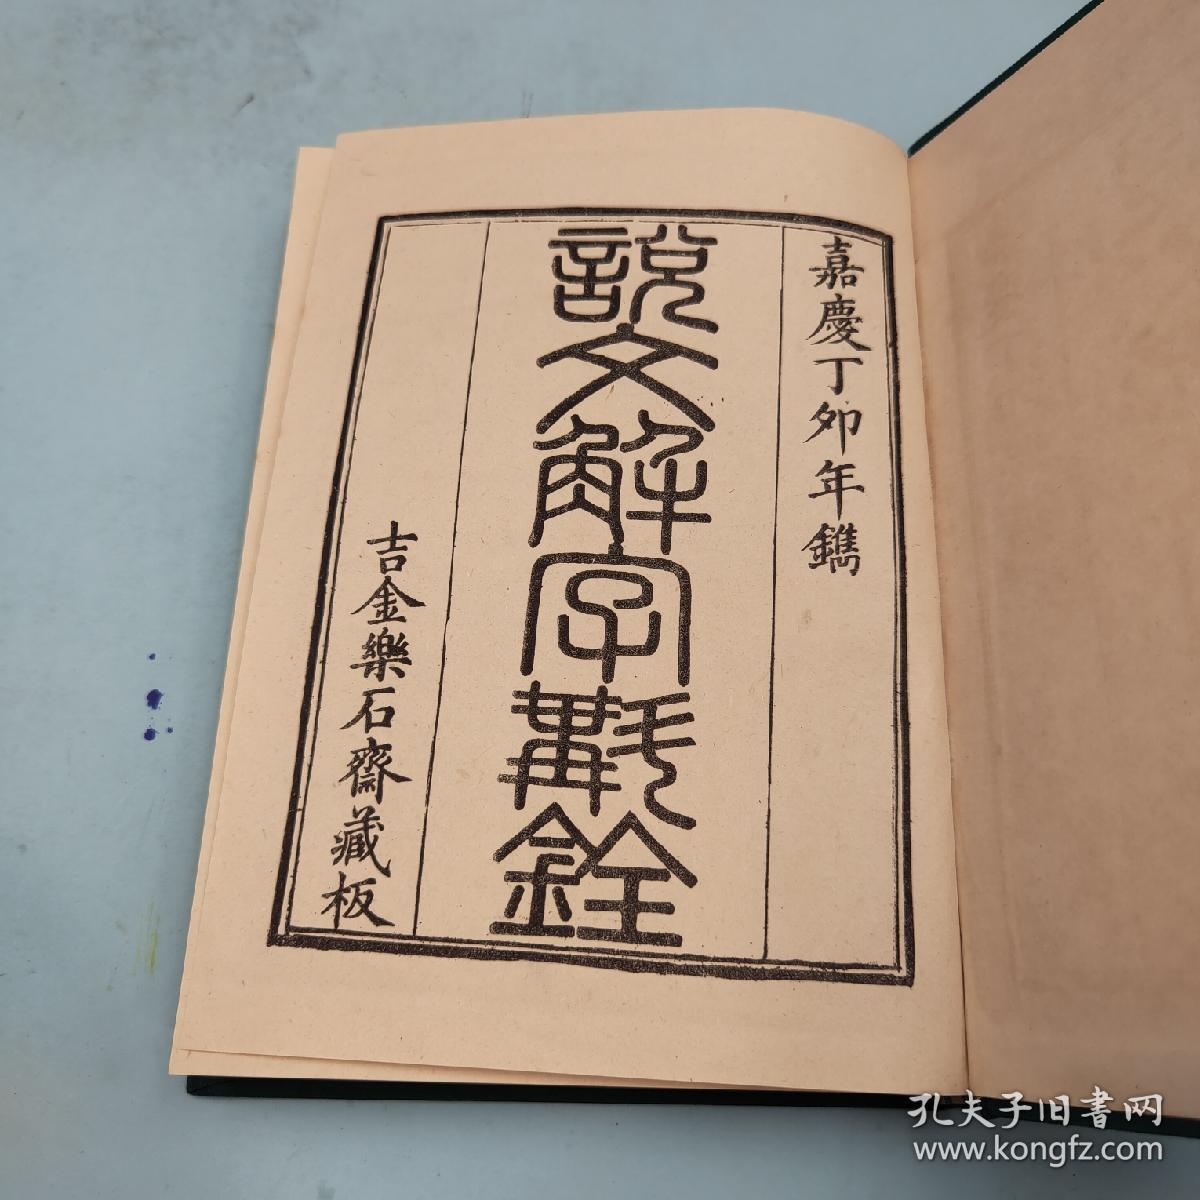 嘉慶丁卯年鐫
說文解字斠詮
吉金樂石齋藏板
孔夫子旧書网
www.kongfz.com